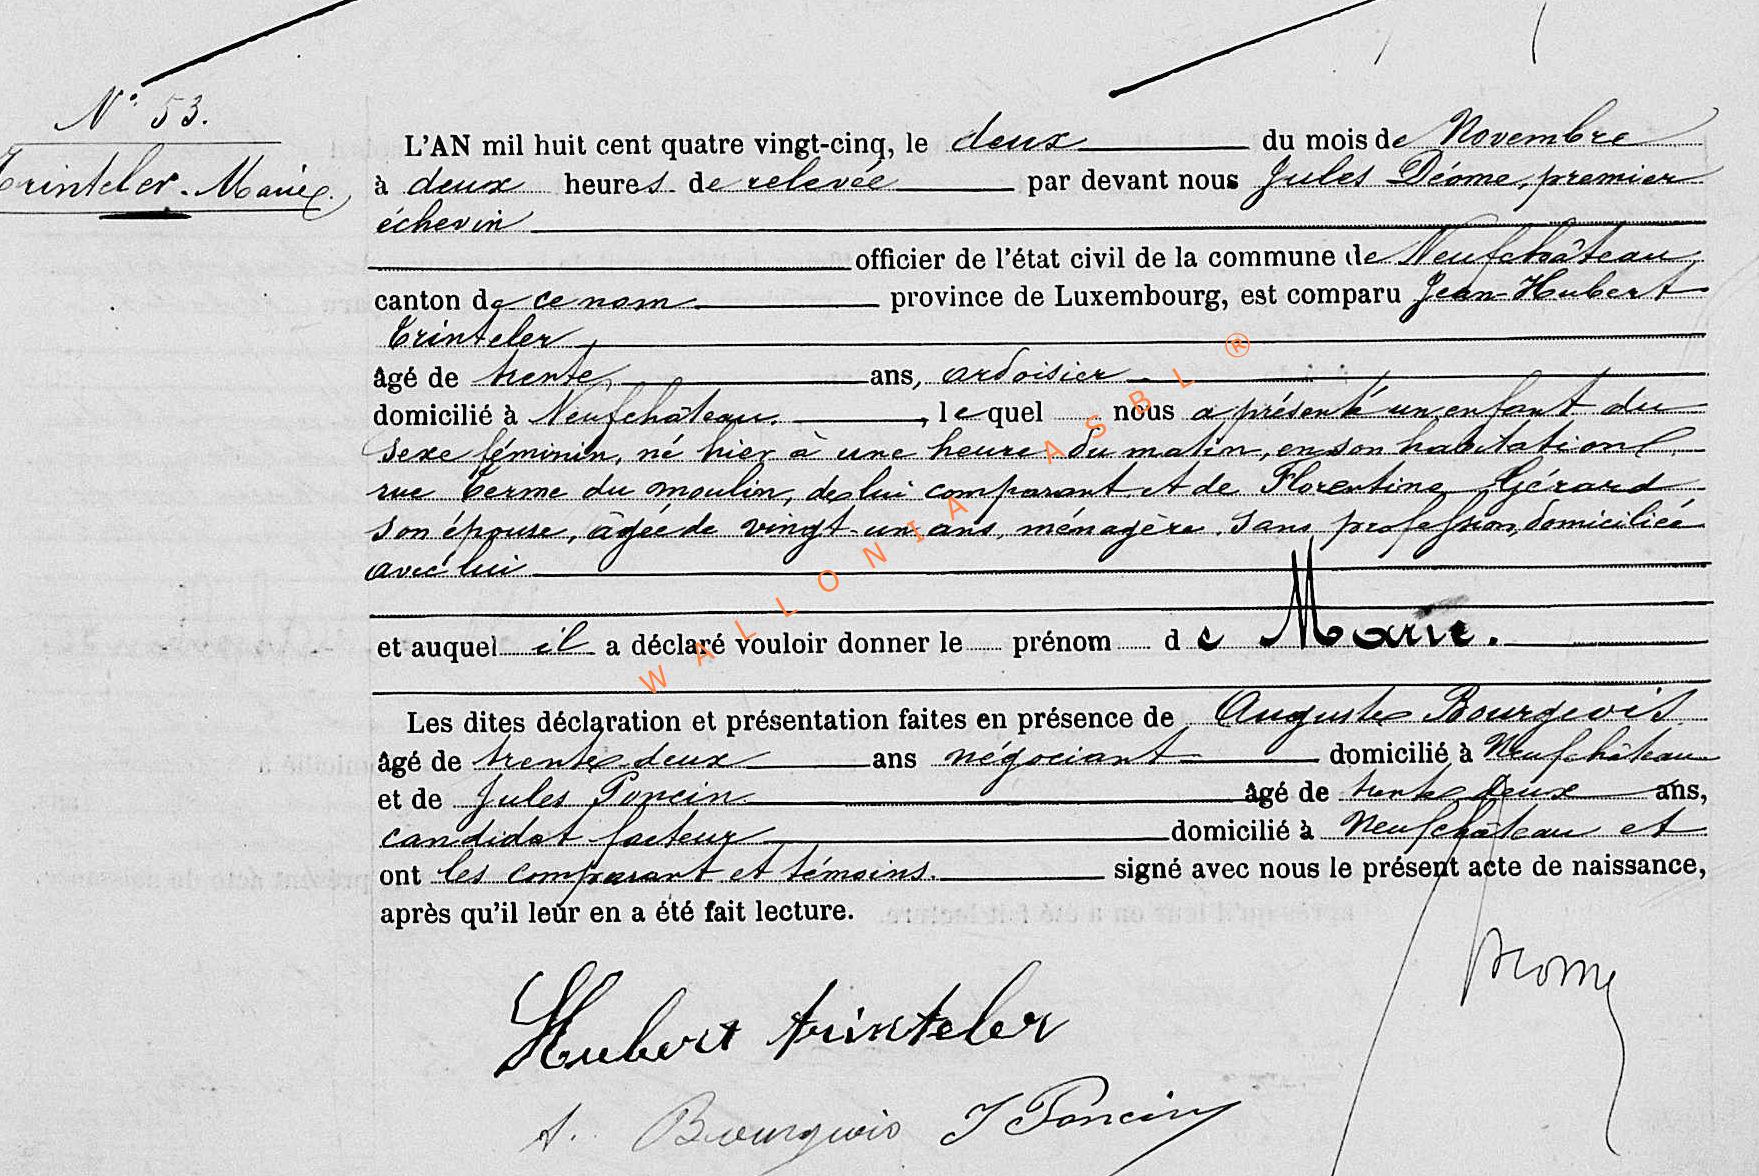 N° 53.
Trinteler. Marie.
L'AN mil huit cent quatre vingt-cinq, le deux du mois de Novembre
à deux heures de relevée par devant nous Jules Déome, premier
échevin
officier de l'état civil de la commune de Neufchâteau,
canton de ce nom province de Luxembourg, est comparu Jean-Hubert
Trinteler,
âgé de trente ans, ardoisier
domicilié à Neufchâteau. , lequel nous a présenté un enfant du
sexe féminin, né hier à une heure du matin, en son habitation
rue Terme du moulin, de lui comparant et de Florentine Gérard
son épouse, âgée de vingt-un ans, ménagère. sans profession, domiciliée
avec lui
et auquel il a déclaré vouloir donner le prénom de Marie.
Les dites déclaration et présentation faites en présence de Auguste Bourgeois
âgé de trente deux ans négociant domicilié à Neufchâteau
et de Jules Poncin âgé de trente deux ans,
candidat facteur domicilié à Neufchâteau et
ont les comparant et témoins. signé avec nous le présent acte de naissance,
après qu'il leur en a été fait lecture.
Déome
Hubert trinteler
A. Bourgeois J Poncin
WALLONIA ASBL ®